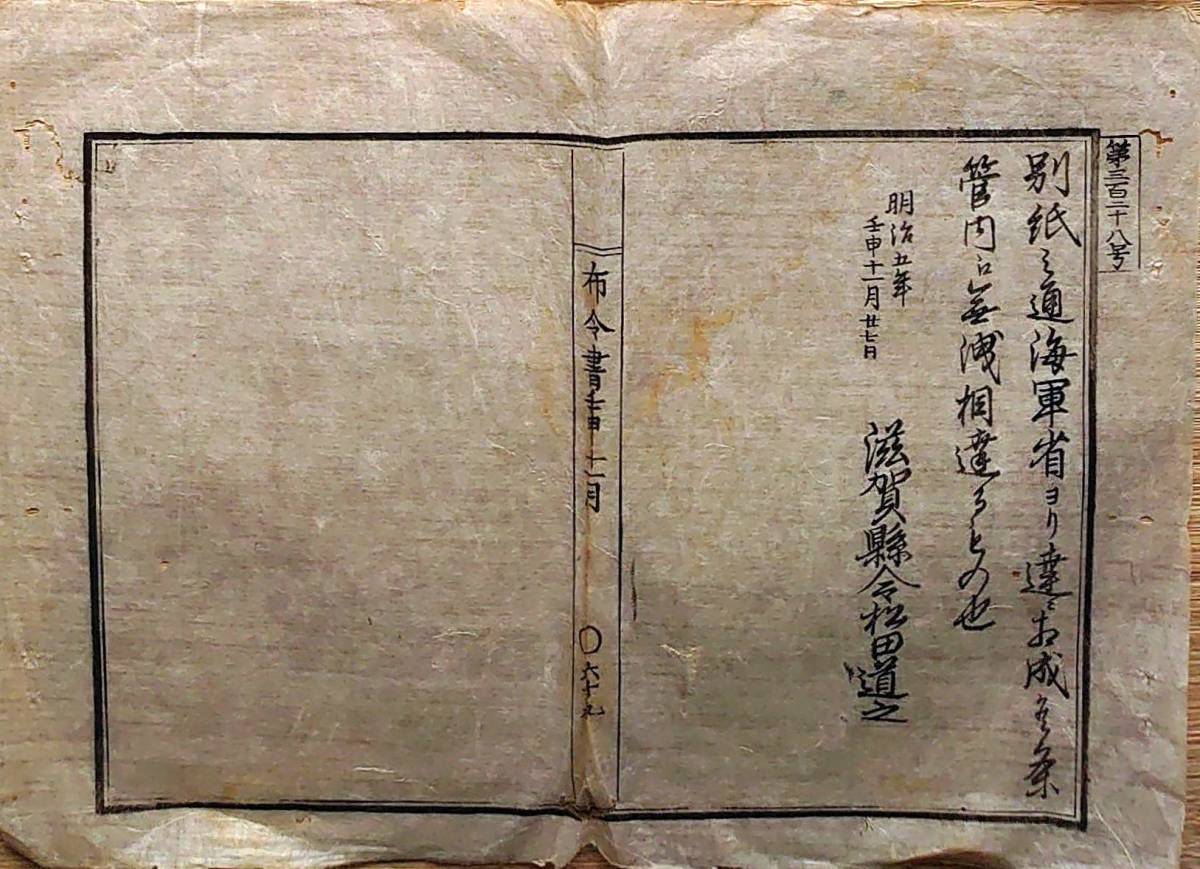 第三百二十八号
別紙之通海軍省ヨリ達ニ相成候条
管内ニ無洩相達スルもの也
明治五年
壬申十一月廿七日
滋賀縣令松田道之
布令書壬申十一月
〇六十九